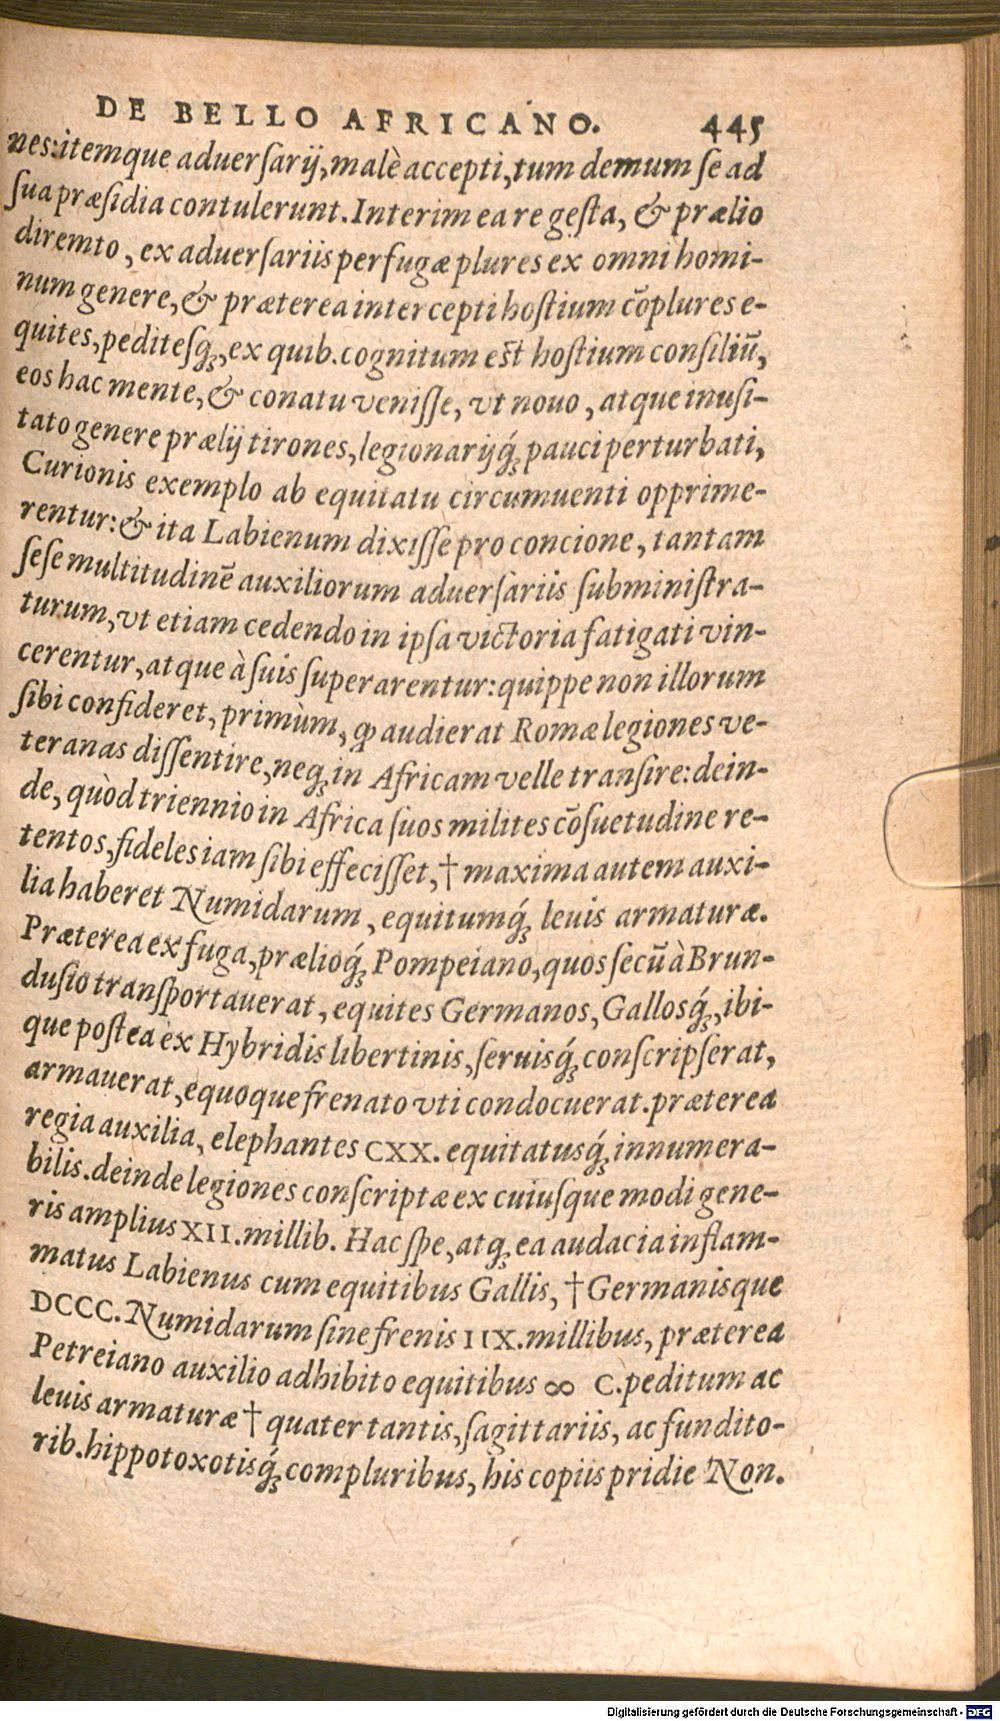 DE BELLO AFRICANO. 445
nes:itemque aduersarij, malè accepti, tum demum se ad
sua præsidia contulerunt. Interim ea re gesta, & prælio
diremto, ex aduersariis perfugæ plures ex omni homi-
num genere, & præterea intercepti hostium cõplures e-
quites, peditesq́;, ex quib. cognitum est hostium consiliũ,
eos hac mente, & conatu venisse, vt nouo, atque inusi-
tato genere prælij tirones, legionarijq́; pauci perturbati,
Curionis exemplo ab equitatu circumuenti opprime-
rentur: & ita Labienum dixisse pro concione, tantam
sese multitudinẽ auxiliorum aduersariis subministra-
turum, vt etiam cedendo in ipsa victoria fatigati vin-
cerentur, atque à suis superarentur: quippe non illorum
sibi confideret, primùm, ꝙ audierat Romæ legiones ve-
teranas dissentire, neq; in Africam velle transire: dein-
de, quòd triennio in Africa suos milites cõsuetudine re-
tentos, fideles iam sibi effecisset, † maxima autem auxi-
lia haberet Numidarum, equitumq́; leuis armaturæ.
Præterea ex fuga, prælioq́; Pompeiano, quos secũ à Brun-
dusio transportauerat, equites Germanos, Gallosq́;, ibi-
que postea ex Hybridis libertinis, seruisq́; conscripserat,
armauerat, equoque frenato vti condocuerat. præterea
regia auxilia, elephantes CXX. equitatusq́; innumera-
bilis. deinde legiones conscriptæ ex cuiusque modi gene-
ris amplius XII. millib. Hac spe, atq; ea audacia inflam-
matus Labienus cum equitibus Gallis, † Germanisque
DCCC. Numidarum sine frenis IIX. millibus, præterea
Petreiano auxilio adhibito equitibus ∞ C. peditum ac
leuis armaturæ † quater tantis, sagittariis, ac fundito-
rib. hippotoxotisq́; compluribus, his copiis pridie Non.
Digitalisierung gefördert durch die Deutsche Forschungsgemeinschaft - DFG